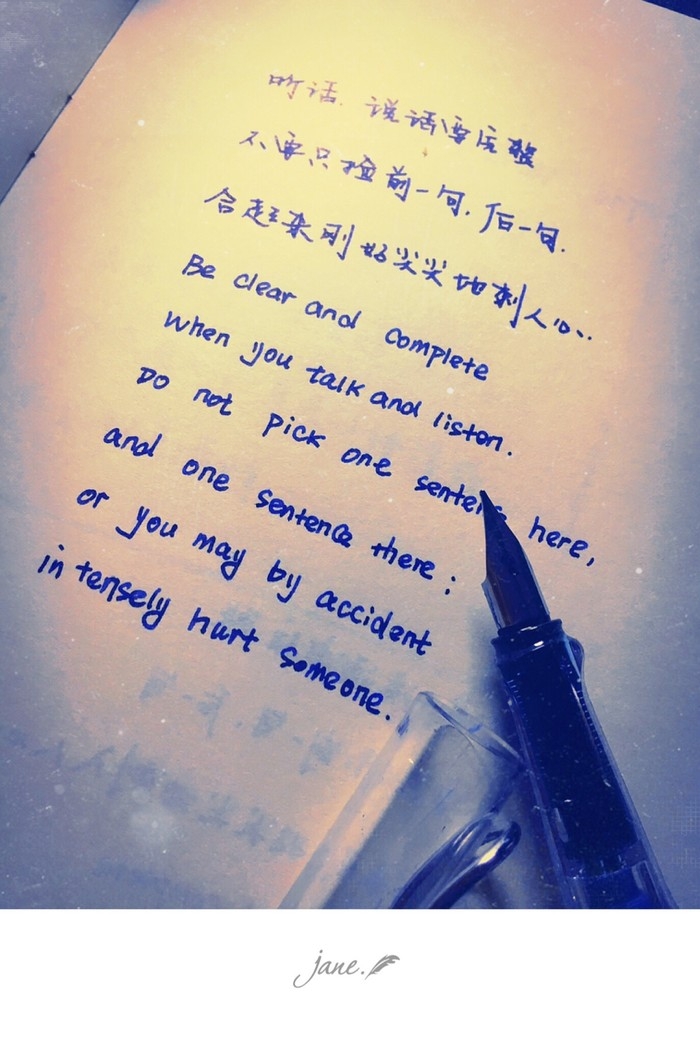 听话.说话要完整
不要只捡前一句.后一句.
合起来刚好尖尖地刺人心..
Be clear and complete
when you talk and listen.
Do not pick one senten here,
and one sentence there;
or you may by accident
intensely hurt someone.
jane.